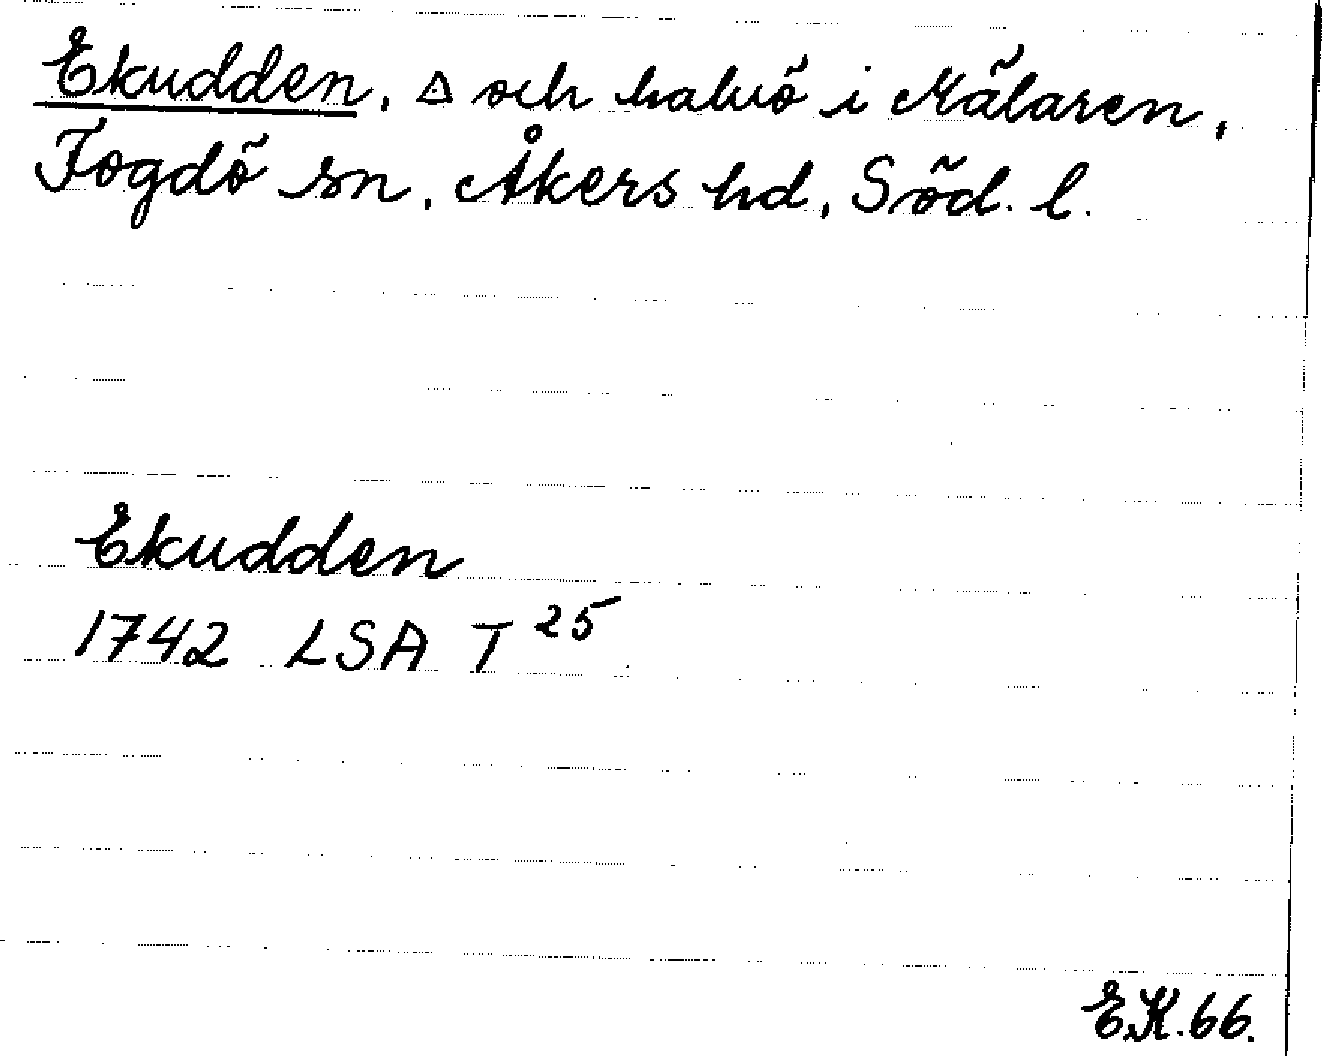 Ekudden, △ och halvö i Mälaren,
Fogdö sn, Åkers hd, Söd. l.
Ekudden
1742 LSA T²⁵
E.K. 66.